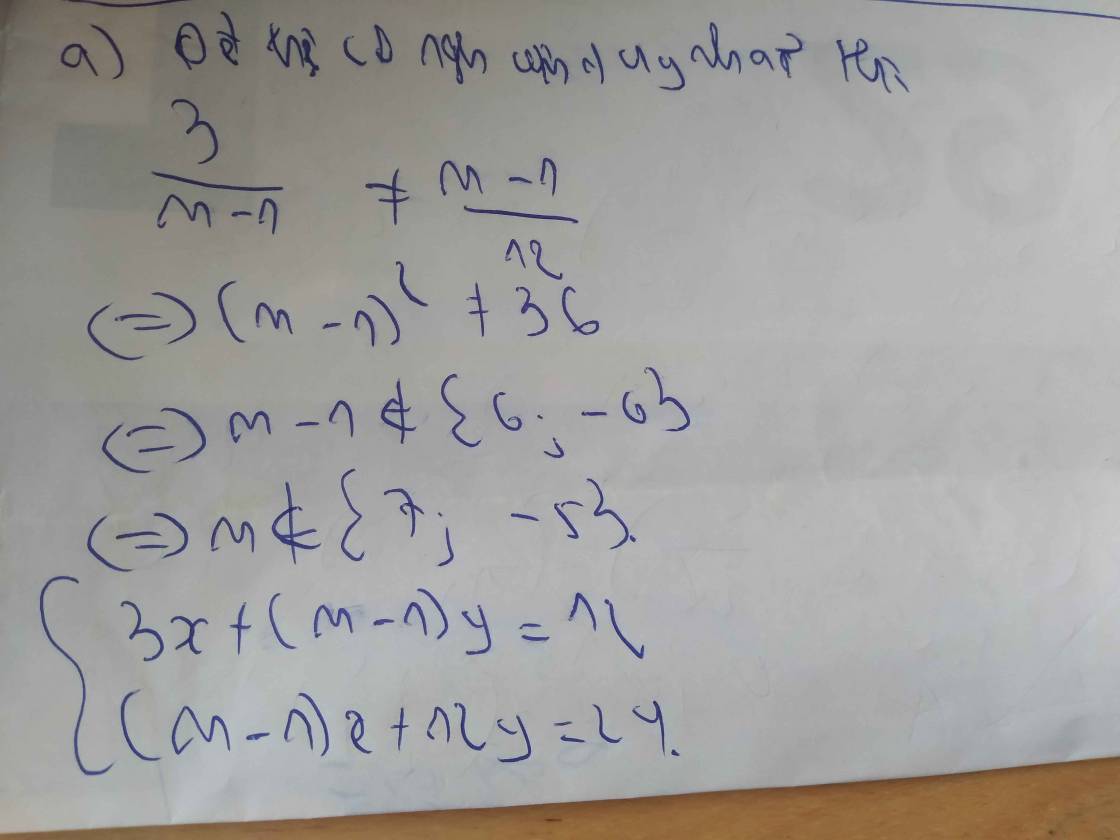 a) Để hệ có nghiệm duy nhất thì
3/(m-1) ≠ (m-1)/12
(=) (m-1)² ≠ 36
(=) m-1 ∉ {6; -6}
(=) m ∉ {7; -5}.
{ 3x+(m-1)y = 12
(m-1)x+12y = 24.